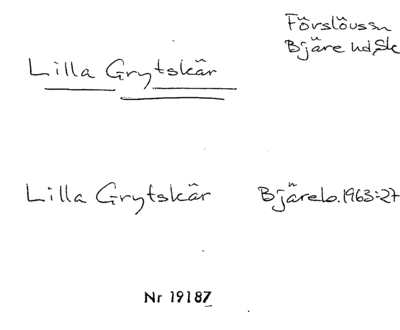 Förslövs sn
Bjäre hd, Sk
Lilla Grytskär
Lilla Grytskär Bjärelo. 1963:27
Nr 19187